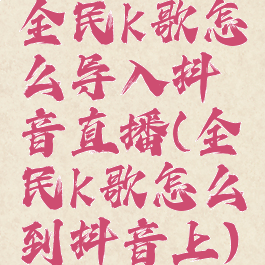 全民k歌怎
么导入抖
音直播(全
民k歌怎么
到抖音上)